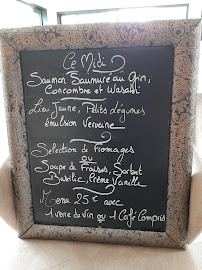 Ce Midi
Saumon Saumuré au Gin,
Concombre et Wasabi
Lieu Jaune, Petits Légumes
émulsion Verveine
Sélection de Fromages
ou
Soupe de Fraises, Sorbet
Basilic, Crème Vanille
Menu 25€ avec
1 verre de vin ou 1 Café Compris